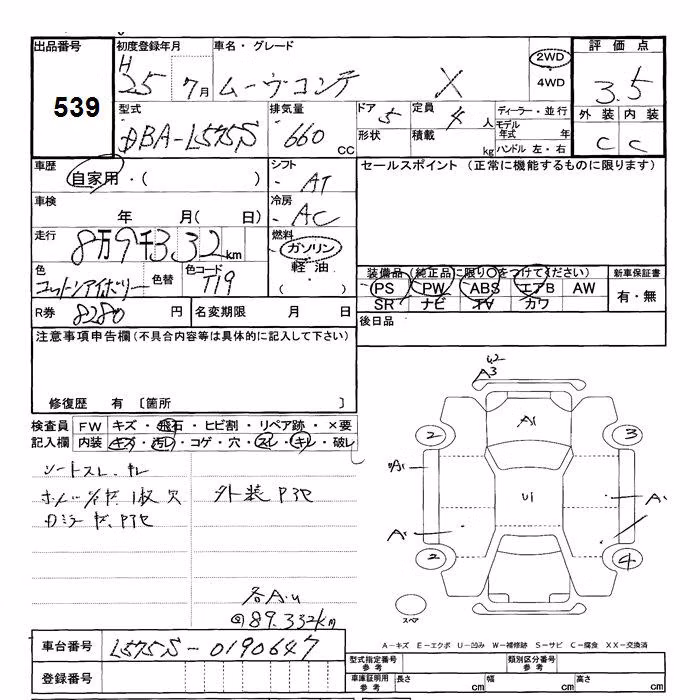 出品番号 初度登録年月 車名・グレード 評価点
539
H
25 7月 ムーヴコンテ X 2WD 3.5
4WD
型式 排気量 ドア 5 定員 4人 ディーラー・並行 外装 内装
DBA-L575S 660 CC 形状 積載 kg モデル年式 年 C C
ハンドル 左・右
車歴 シフト セールスポイント (正常に機能するものに限ります)
自家用・( ) AT
車検 冷房
年 月( 日) AC
走行 燃料
8万9千332km ガソリン
色 色替 色コード 軽油 装備品(純正品に限り○をつけてください) 新車保証書
コットンアイボリー T19 ・( ) PS PW ABS エアB AW 有・無
SR ナビ カワ
R券 8280 円 名変期限 月 日 後日品
注意事項申告欄(不具合内容等は具体的に記入して下さい)
修復歴 有 〔箇所 〕
検査員 FW キズ・飛石・ヒビ割・リペア跡・×要
記入欄 内装 キズ・汚レ・コゲ・穴・スレ・キレ・破レ
シートスレ、キレ
外装
各A.u
89.332km
A3
A1
2 3
A1
U1
A A
2 4
スペア
A－キズ E－エクボ U－凹み W－補修跡 S－サビ C－腐食 XX－交換済
車台番号 L575S-0190647
型式指定番号 参考 類別区分番号 参考
登録番号 車庫証明用 参考 長さ cm 幅 cm 高さ cm